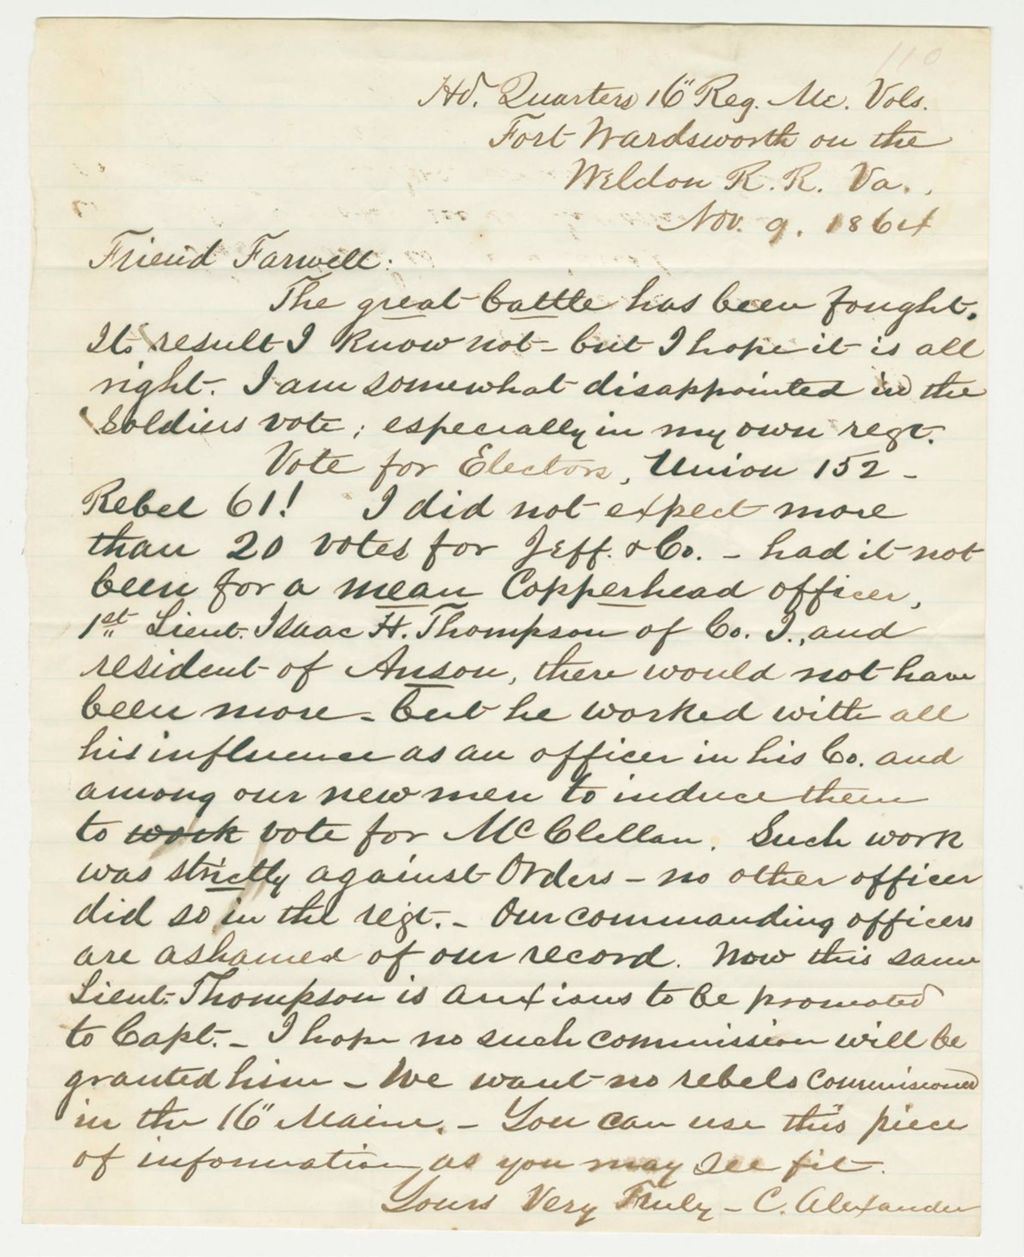 110
Hd. Quarters 16" Reg. Me. Vols.
Fort Wardsworth on the
Weldon R. R. Va.,
Nov. 9, 1864
Friend Farwell:
The great battle has been fought.
Its result I know not - but I hope it is all
right. I am somewhat disappointed in the
Soldiers vote; especially in my own regt.
Vote for Electors, Union 152 -
Rebel 61! I did not expect more
than 20 votes for Jeff. & Co. - had it not
been for a mean Copperhead officer,
1st Lieut. Isaac H. Thompson of Co. I., and
resident of Anson, there would not have
been more - but he worked with all
his influence as an officer in his Co. and
among our new men to induce them
to work vote for McClellan. Such work
was strictly against Orders - no other officer
did so in the regt. - Our commanding officers
are ashamed of our record. Now this same
Lieut. Thompson is anxious to be promoted
to Capt. - I hope no such commission will be
granted him - We want no rebels commissioned
in the 16" Maine. - You can use this piece
of information as you may see fit.
Yours Very Truly - C. Alexander